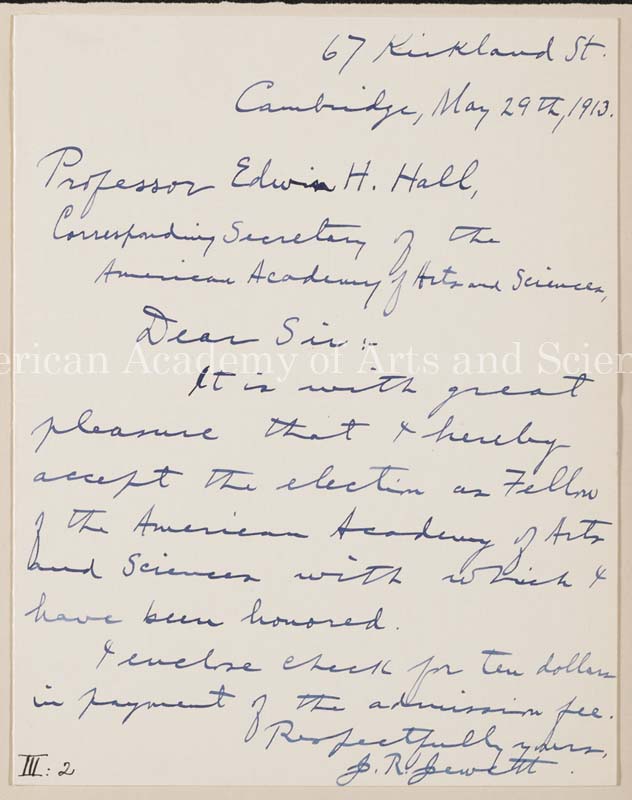 67 Kirkland St.
Cambridge, May 29th, 1913.
Professor Edwin H. Hall,
Corresponding Secretary of the
American Academy of Arts and Sciences,
Dear Sir:-
American Academy of Arts and Scien
It is with great
pleasure that I hereby
accept the election as Fellow
of the American Academy of Arts
and Sciences with which I
have been honored.
I enclose check for ten dollars
in payment of the admission fee.
Respectfully yours,
J. R. Jewett.
III: 2